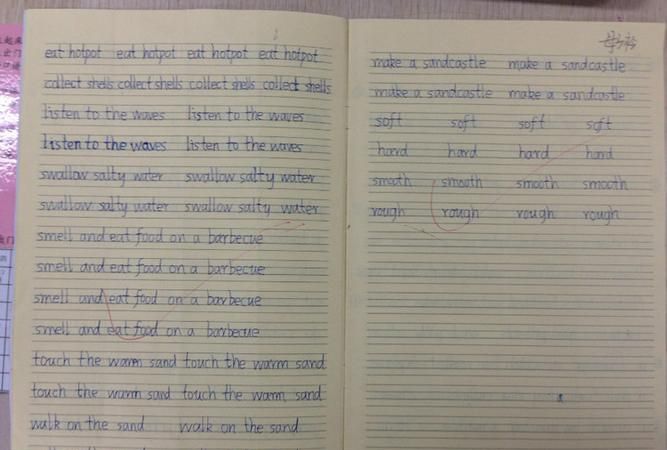 eat hotpot eat hotpot eat hotpot eat hotpot
collect shells collect shells collect shells collect shells
listen to the waves listen to the waves
listen to the waves listen to the waves
swallow salty water swallow salty water
swallow salty water swallow salty water
smell and eat food on a barbecue
smell and eat food on a barbecue
smell and eat food on a barbecue
smell and eat food on a barbecue
touch the warm sand touch the warm sand
touch the warm sand touch the warm sand
walk on the sand walk on the sand
make a sandcastle make a sandcastle
make a sandcastle make a sandcastle
soft soft soft soft
hard hard hard hard
smooth smooth smooth smooth
rough rough rough rough